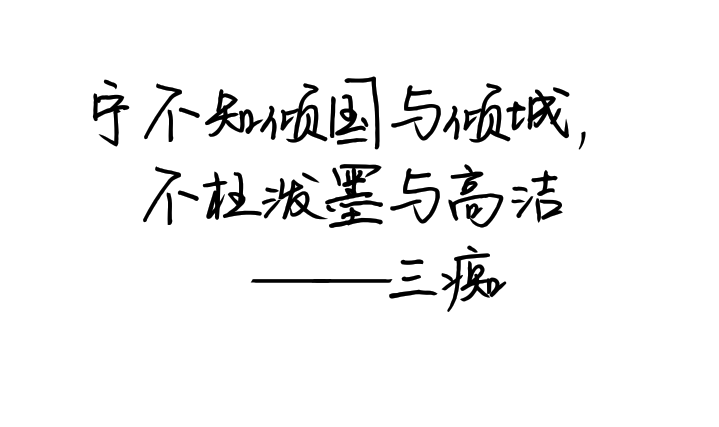 宁不知倾国与倾城，
不枉泼墨与高洁
———三痴